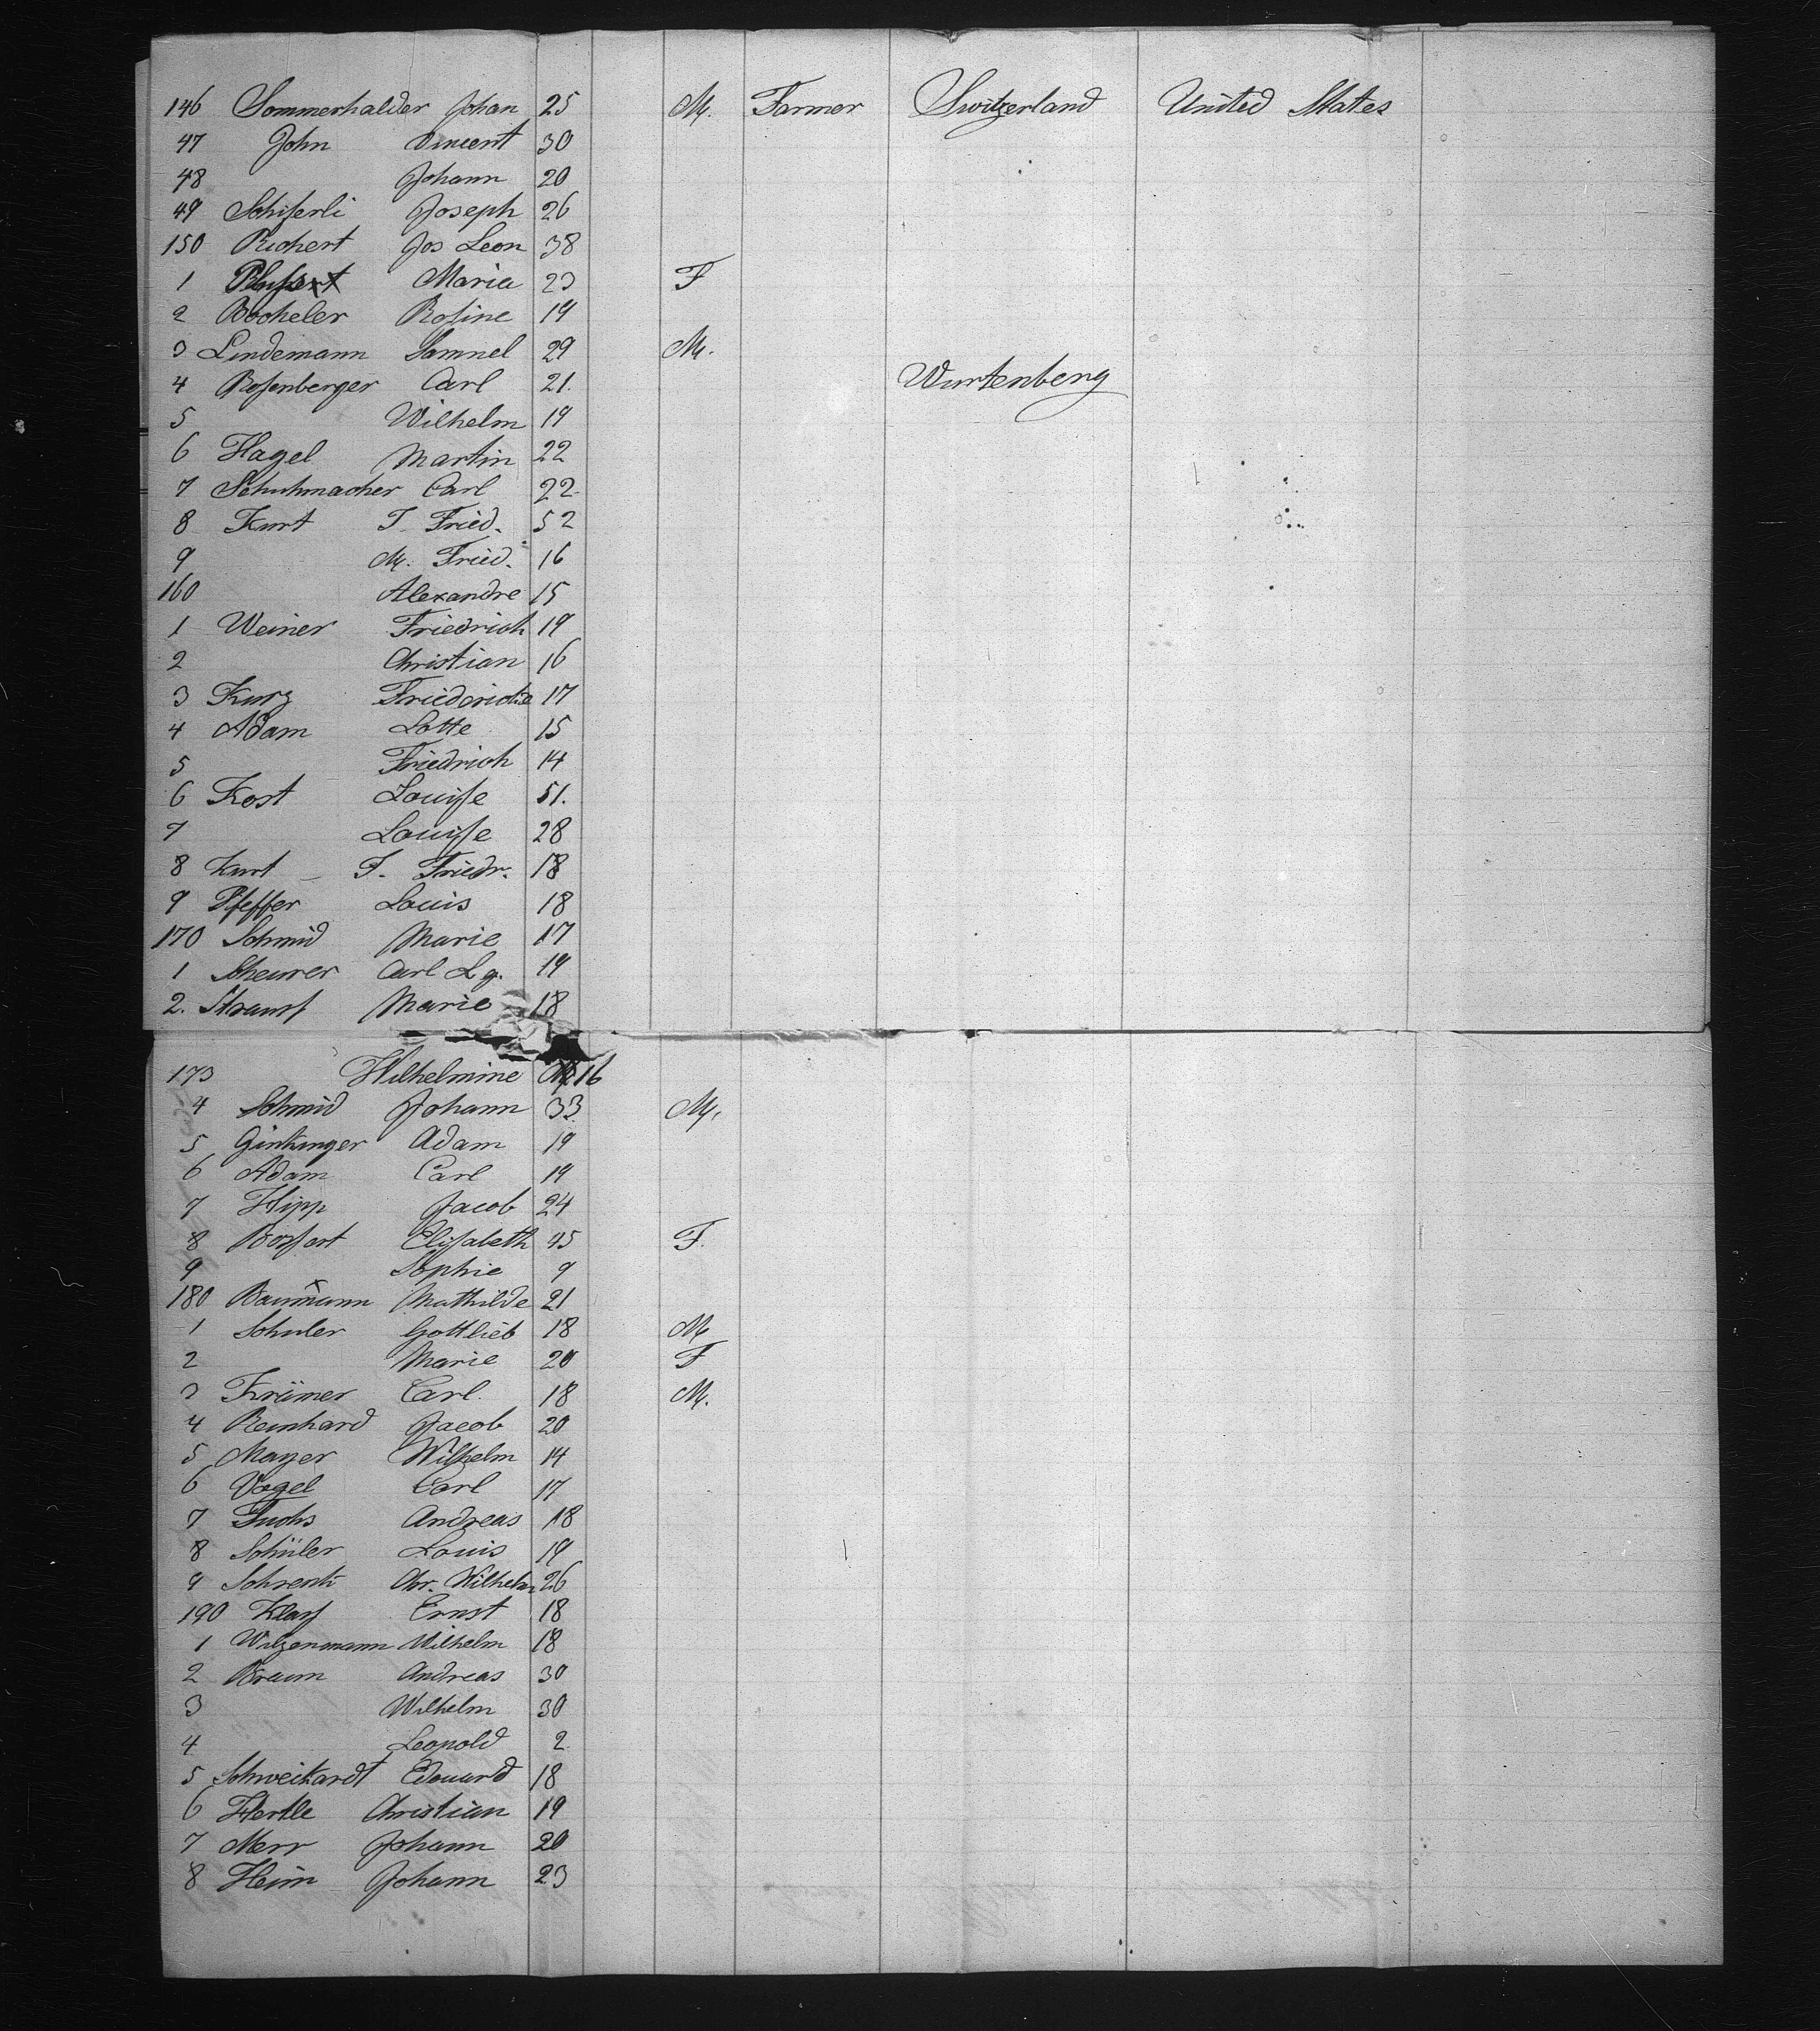 146 Sommerhalder Johan 25 M. Farmer Switzerland United States
47 John Vincent 30
48 Johann 20
49 Schiferli Joseph 26
150 Richert Jos Leon 38
1 Maria 23 F
2 Bocheler Rosine 19
3 Lindemann Samuel 29 M.
4 Rosenberger Carl 21. Wurtenberg
5 Wilhelm 19
6 Hagel Martin 22
7 Schuhmacher Carl 22
8 Kurt J. Fried. 52
9 M. Fried. 16
160 Alexandre 15
1 Weiner Friedrich 19
2 Christian 16
3 Kurz 17
4 Adam Lotte 15
5 Friedrich 14
6 Kost Louise 51.
7 Louise 28
8 Kurt J. Friedr. 18
9 Pfeffer Louis 18
170 Schmid Marie 17
1 Scheurer Carl Lg. 19
2. Strauss Marie 18
173 Wilhelmine 16
4 Schmid Johann 33 M.
5 Adam 19
6 Adam Carl 19
7 Hipp Jacob 24
8 Elisabeth 45 F.
9 Sophie 9
180 Baumann Mathilde 21
1 Schuler Gottlieb 18 M
2 Marie 20 F
3 Krämer Carl 18 M.
4 Reinhard Jacob 20
5 Mayer Wilhelm 14
6 Vogel Carl 17
7 Fuchs Andreas 18
8 Schüler Louis 19
9 Schrenk Chr. Wilhelm 26
190 Klass Ernst 18
1 Wilzenmann Wilhelm 18
2 Braun Andreas 30
3 Wilhelm 30
4 Leopold 2
5 Schweikardt Edouard 18
6 Hertle Christian 19
7 Merr Johann 20
8 Heim Johann 23